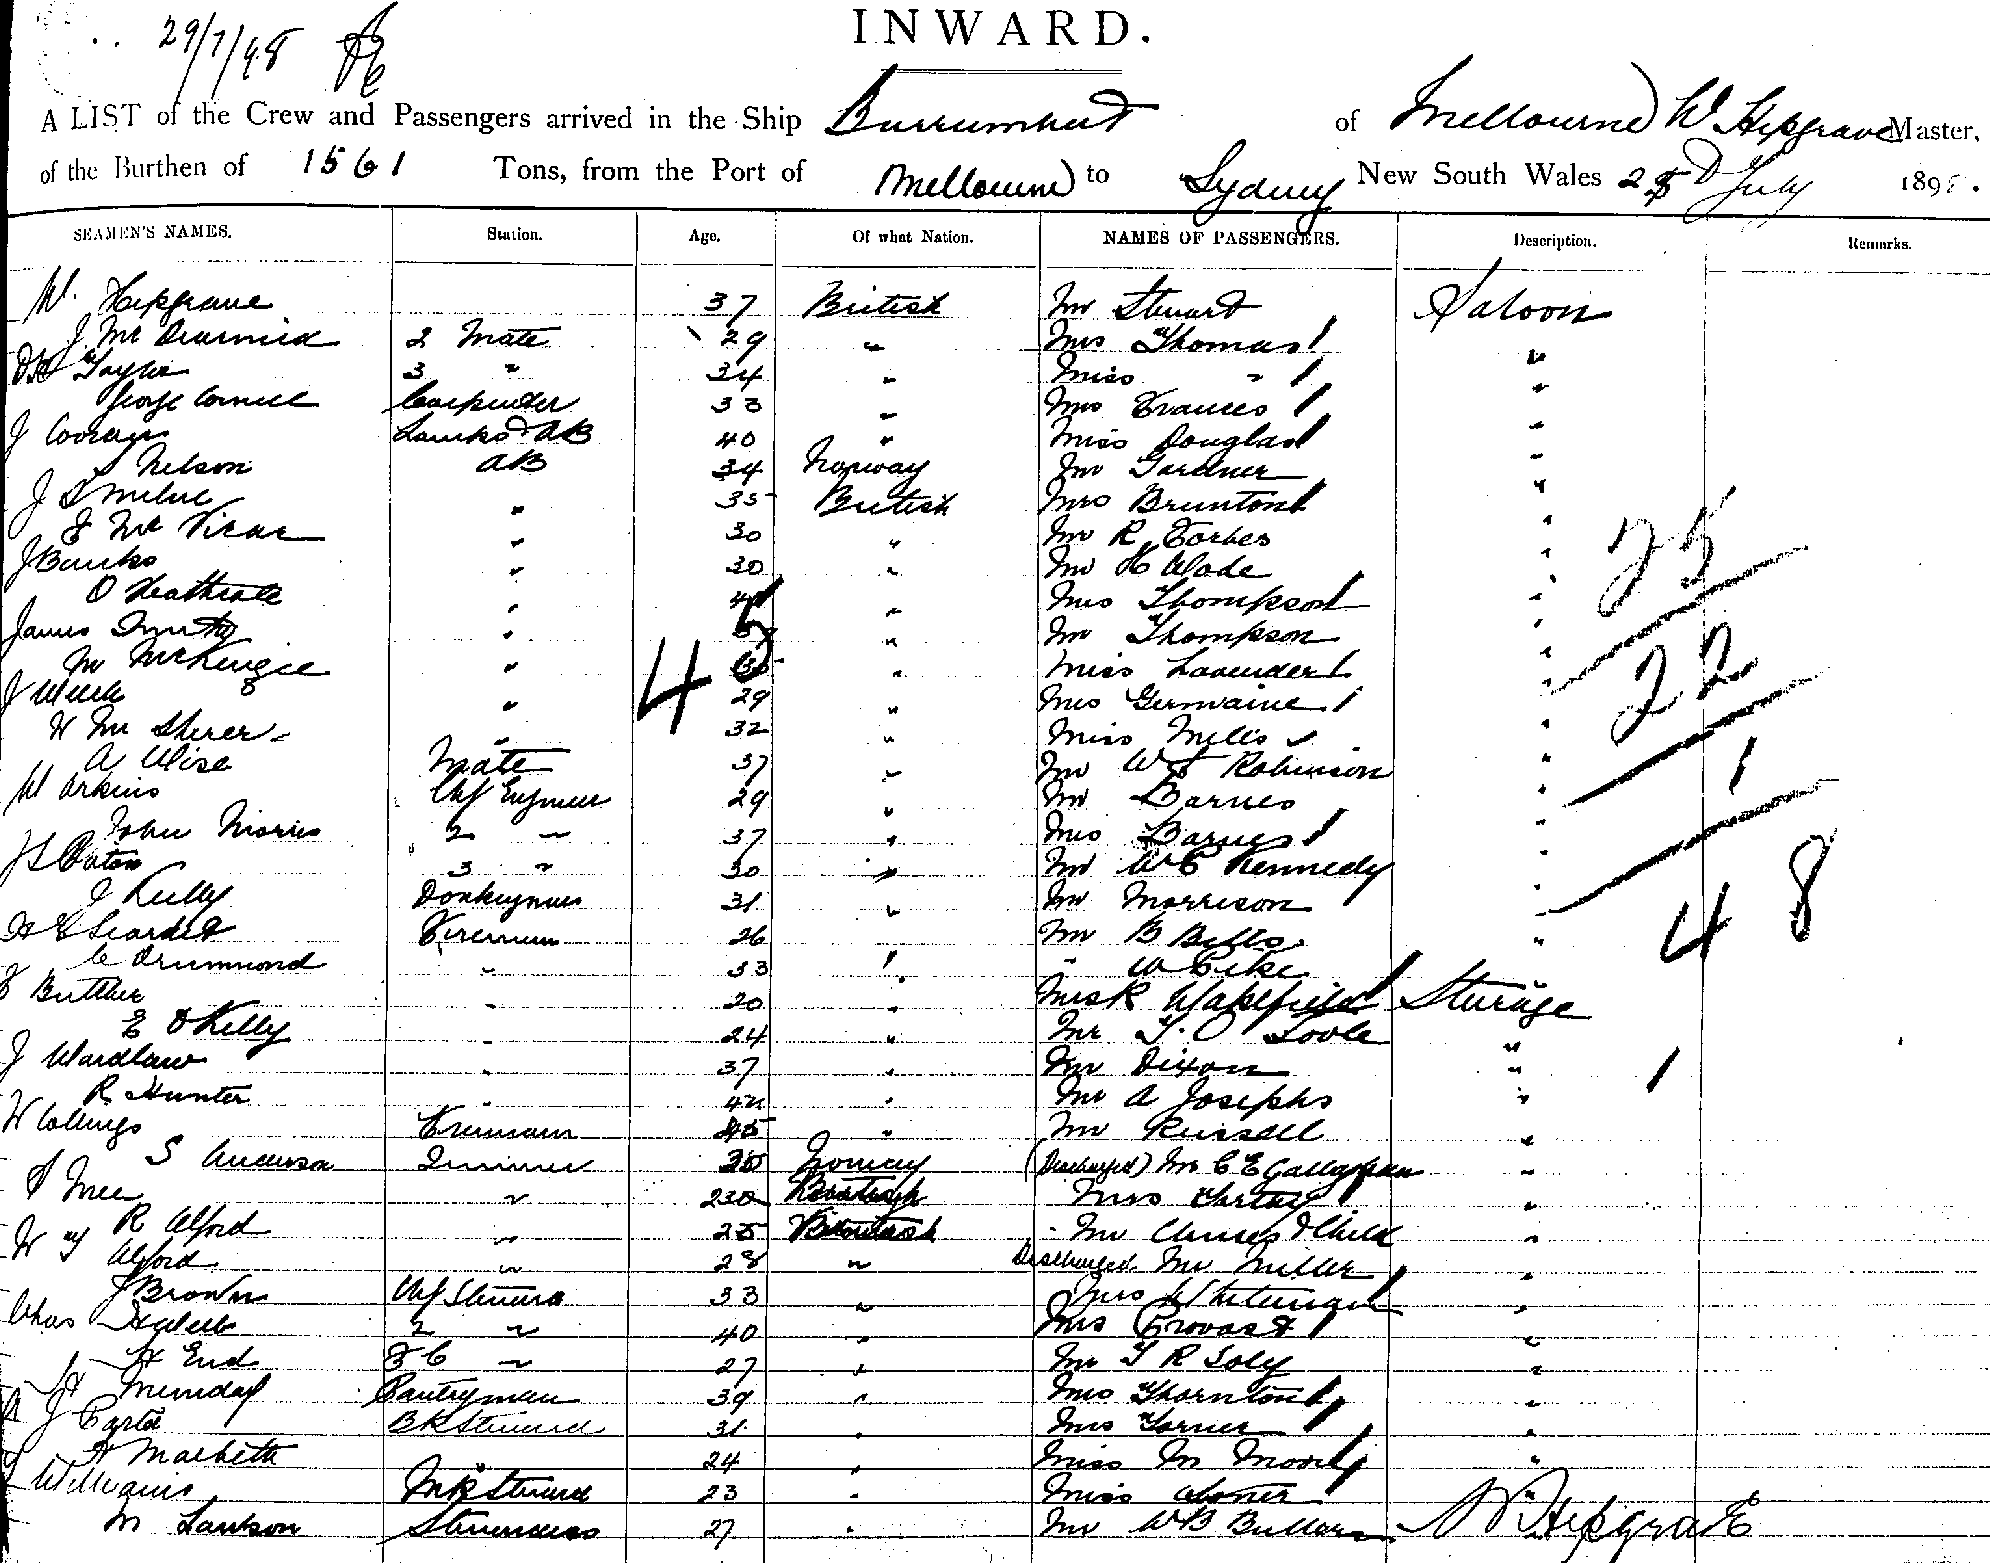 29/7/98
INWARD.
A LIST of the Crew and Passengers arrived in the Ship Burrumbeet of Melbourne W Hipgrave Master,
of the Burthen of 1561 Tons, from the Port of Melbourne to Sydney New South Wales 28 July 1898.
SEAMEN'S NAMES. Station. Age. Of what Nation. NAMES OF PASSENGERS. Description. Remarks.
W. Hipgrave 37 British Mr Stewart Saloon
J Mc Dearmid 2 Mate 29 " Mrs Thomas "
Taylor 3 " 34 " Miss " "
George Cornell Carpenter 33 " Mrs Frances "
J Lamps & AB 40 " Miss Douglas "
S Nelson AB 34 Norway Mr Gardner "
J S Milne " 35 British Mrs Brunton "
F Mc Vicar " 30 " Mr R Forbes "
J Banks " 30 " Mr H Wade "
O Heathcote " " Mrs Thompson "
James Smith " " Mr Thompson "
M McKenzie " " Miss Lavender "
J Welch " 29 " Mrs Germaine "
H Mc Sherer " 32 " Miss Mills "
A Wise Mate 37 " Mr W F Robinson "
W Arkins Chf Engineer 29 " Mr Barnes "
John Morris 2 " 37 " Mrs Barnes "
3 " 30 " Mr W C Kennedy "
J Kelly Donkeyman 31 " Mr Morrison "
Firemen 26 Mr B Betts "
C Drummond " 33 " " W Pike
F Buttber " 20 " Mrs R Wakefield Steerage
E O Kelly " 24 " Mr T. O Toole "
J Wardlaw " 37 " Mr Dixon "
R Hunter " 42 " Mr A Josephs "
W Collings Fireman 45 " Mr Russell "
S Anderson Trimmer Norway (Discharged) Mr C E "
" British Mrs "
R Alford " 25 British Mr & Child "
W Alford " 28 " Discharged Mr Miller "
J Brown Chf Steward 33 " Mrs "
Chas 2 " 40 " Mrs Provost "
H End F C " 27 " Mr T R Soley "
H Munday Pantryman 39 " Mrs Thornton "
J Carta BK Steward 31 " Mrs "
H Macbeth " 24 " Miss M Moody "
Williams Steward 23 " Miss "
M Stewardess 27 " Mr W B W Hipgrave
4 5
25
22
1
48